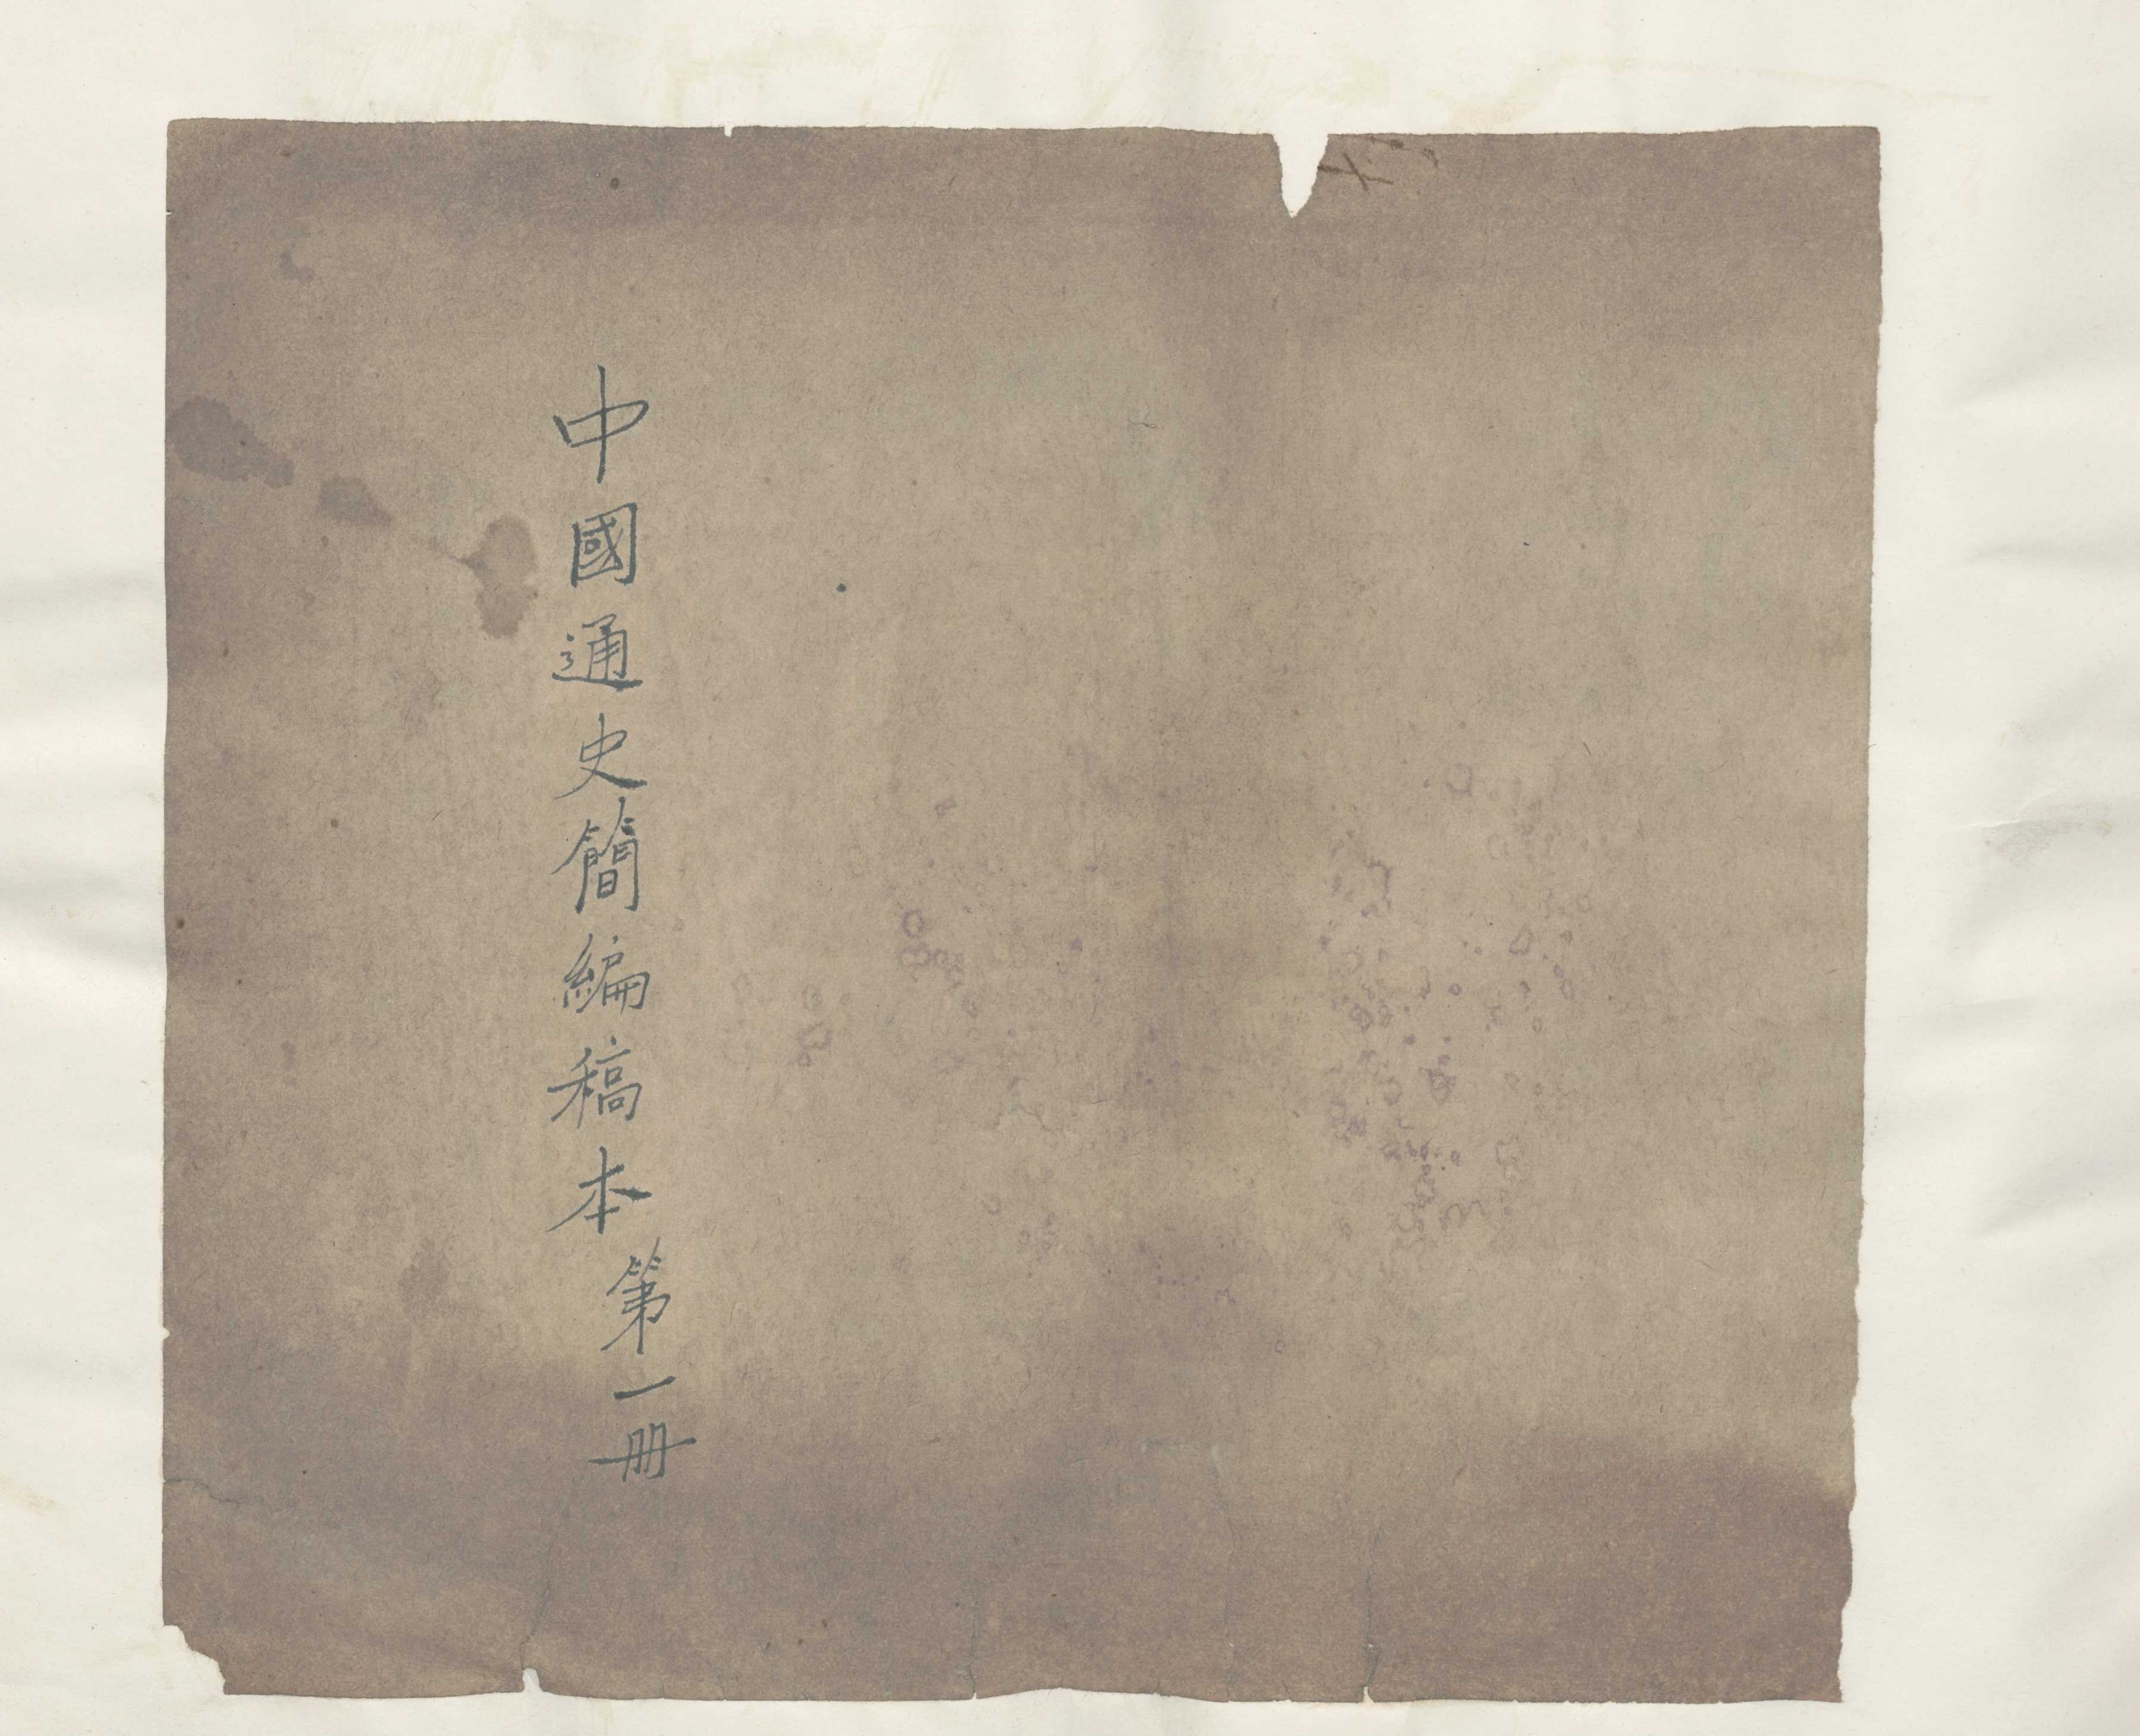 中國通史簡編稿本第一冊